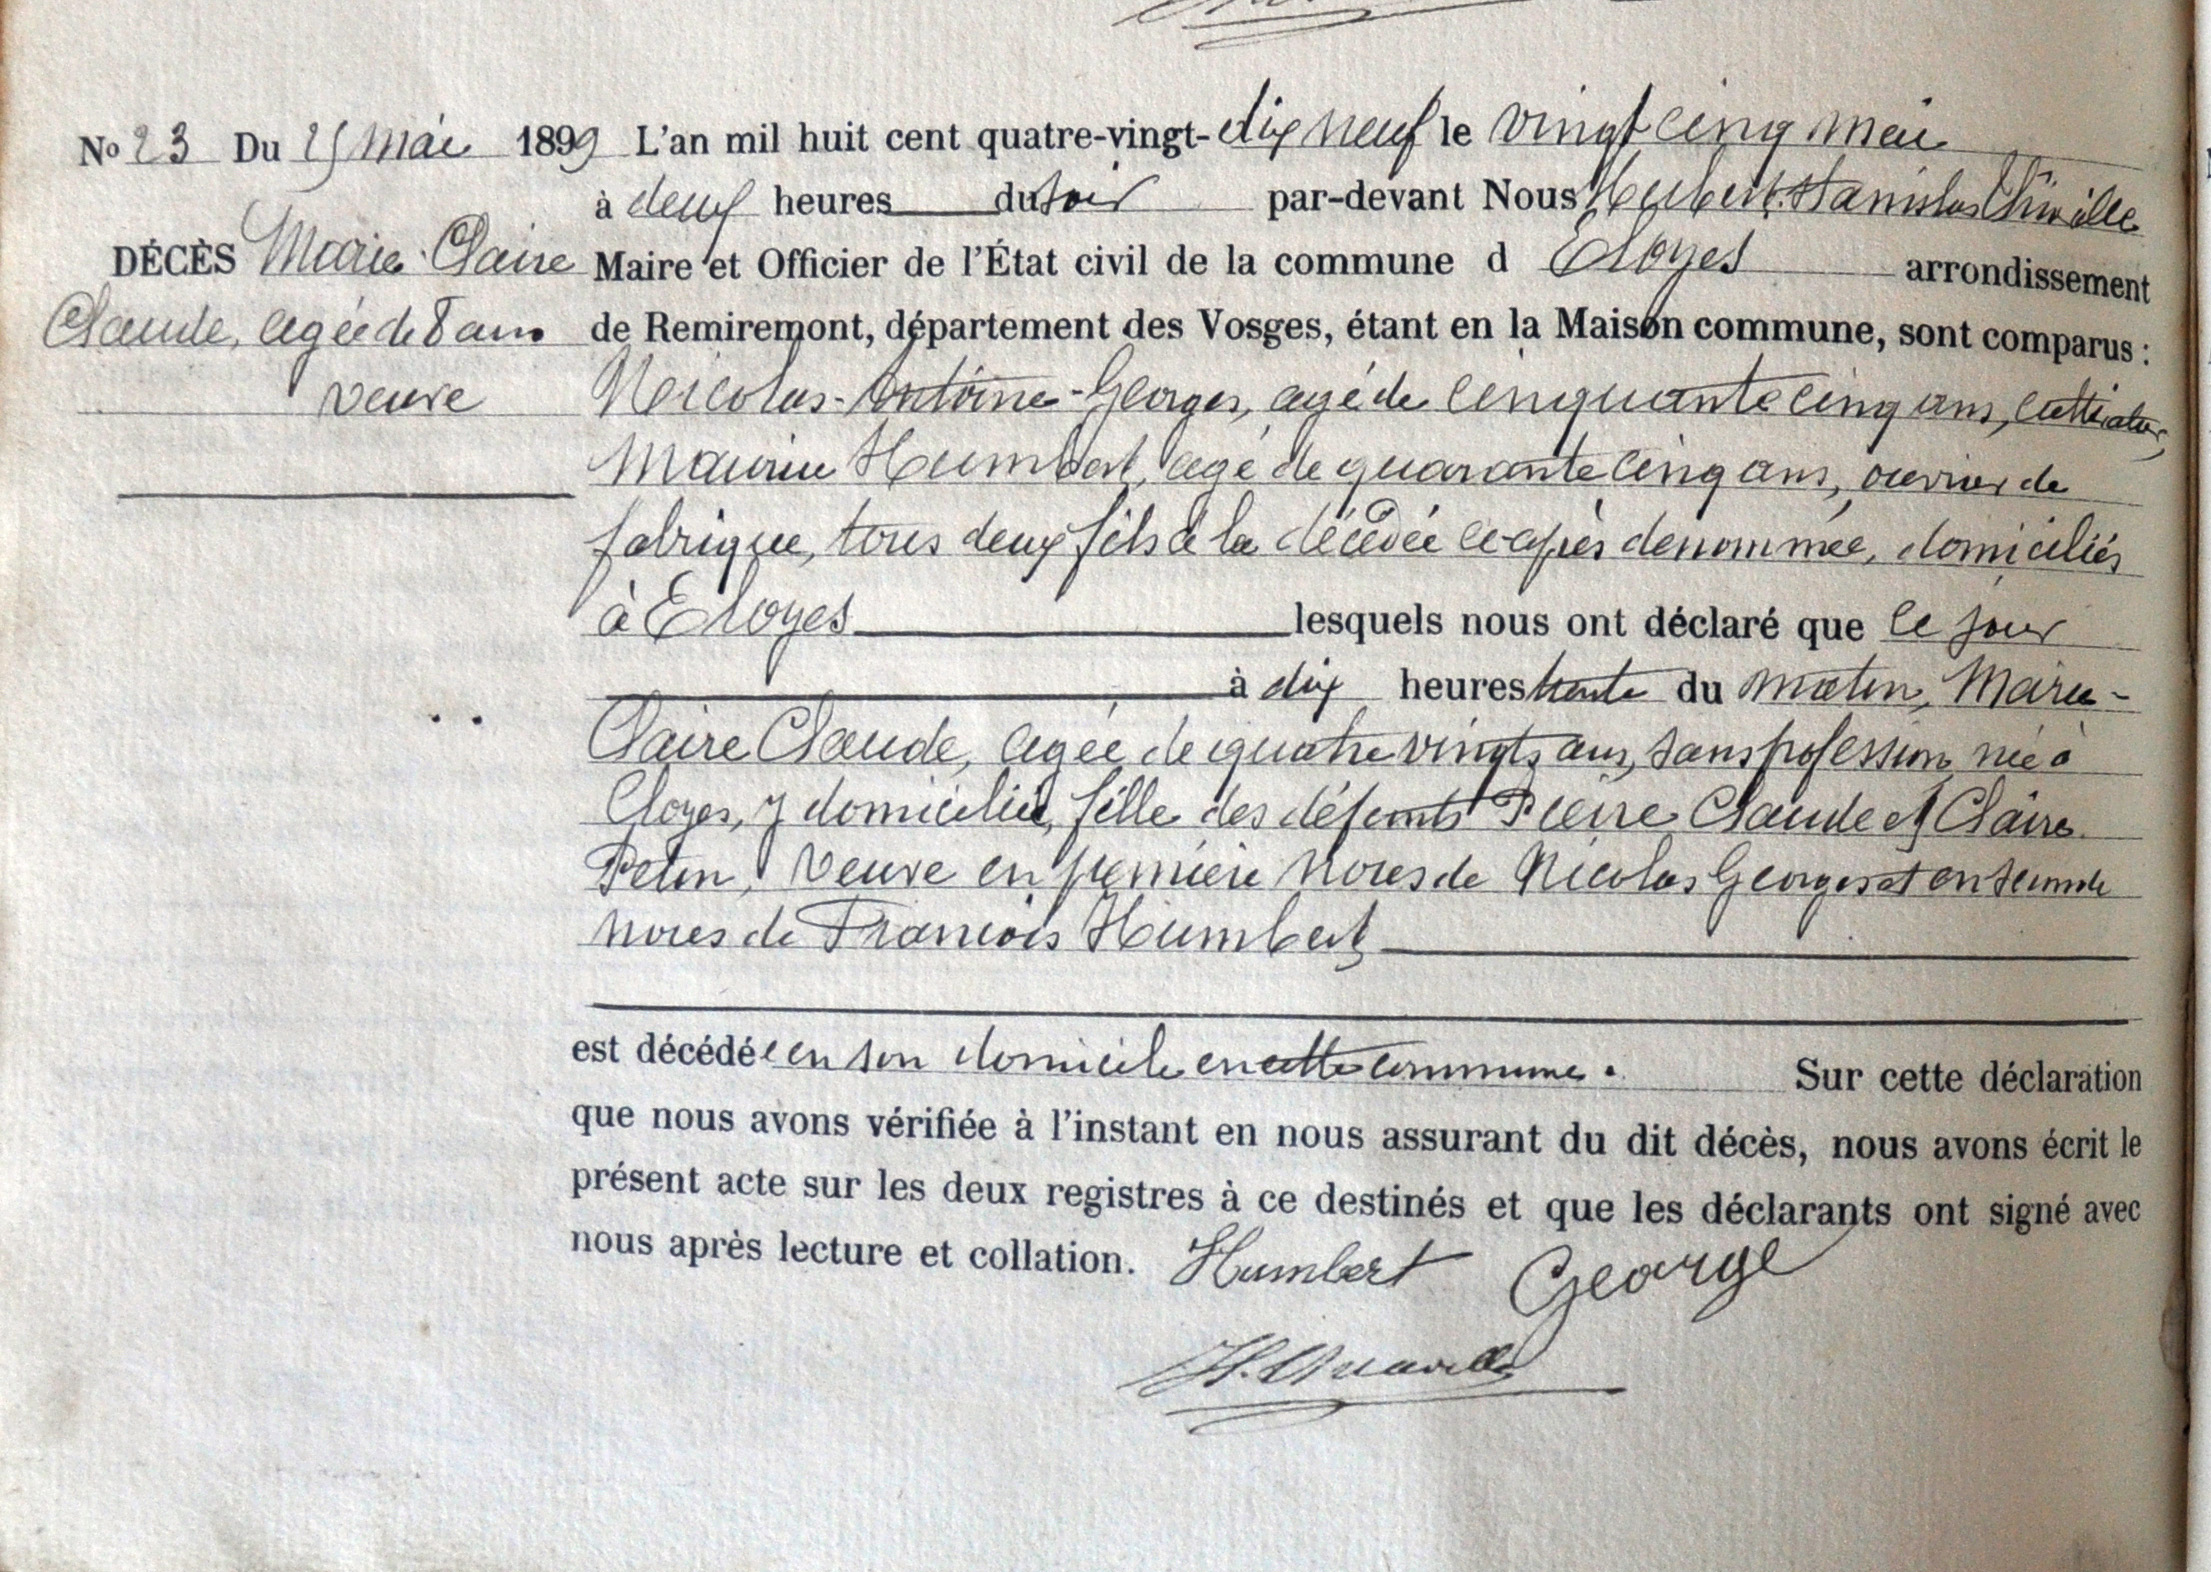 No 23 Du 25 Mai 1899
DÉCÈS Marie-Claire
Claude, agée de 8 ans
veuve
L'an mil huit cent quatre-vingt-dix neuf le vingt cinq mai
à deux heures du soir par-devant Nous Hubert Stanislas
Maire et Officier de l'État civil de la commune d Eloyes arrondissement
de Remiremont, département des Vosges, étant en la Maison commune, sont comparus :
Nicolas-Antoine-Georges, agé de cinquante cinq ans, cultivateur,
Maurice Humbert, agé de quarante cinq ans, ouvrier de
fabrique, tous deux fils de la décédée ci-après dénommée, domiciliés
à Eloyes lesquels nous ont déclaré que ce jour
à dix heures trente du matin, Marie-
Claire Claude, agée de quatre vingts ans, sans profession, née à
Eloyes, y domiciliée, fille des défunts Pierre Claude et Claire
Petin, veuve en première noces de Nicolas Georges et en seconde
noces de François Humbert
est décédée en son domicile en cette commune. Sur cette déclaration
que nous avons vérifiée à l'instant en nous assurant du dit décès, nous avons écrit le
présent acte sur les deux registres à ce destinés et que les déclarants ont signé avec
nous après lecture et collation. Humbert George